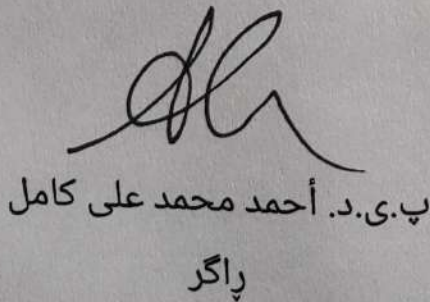 پ.ی.د. أحمد محمد علی کامل
ڕاگر